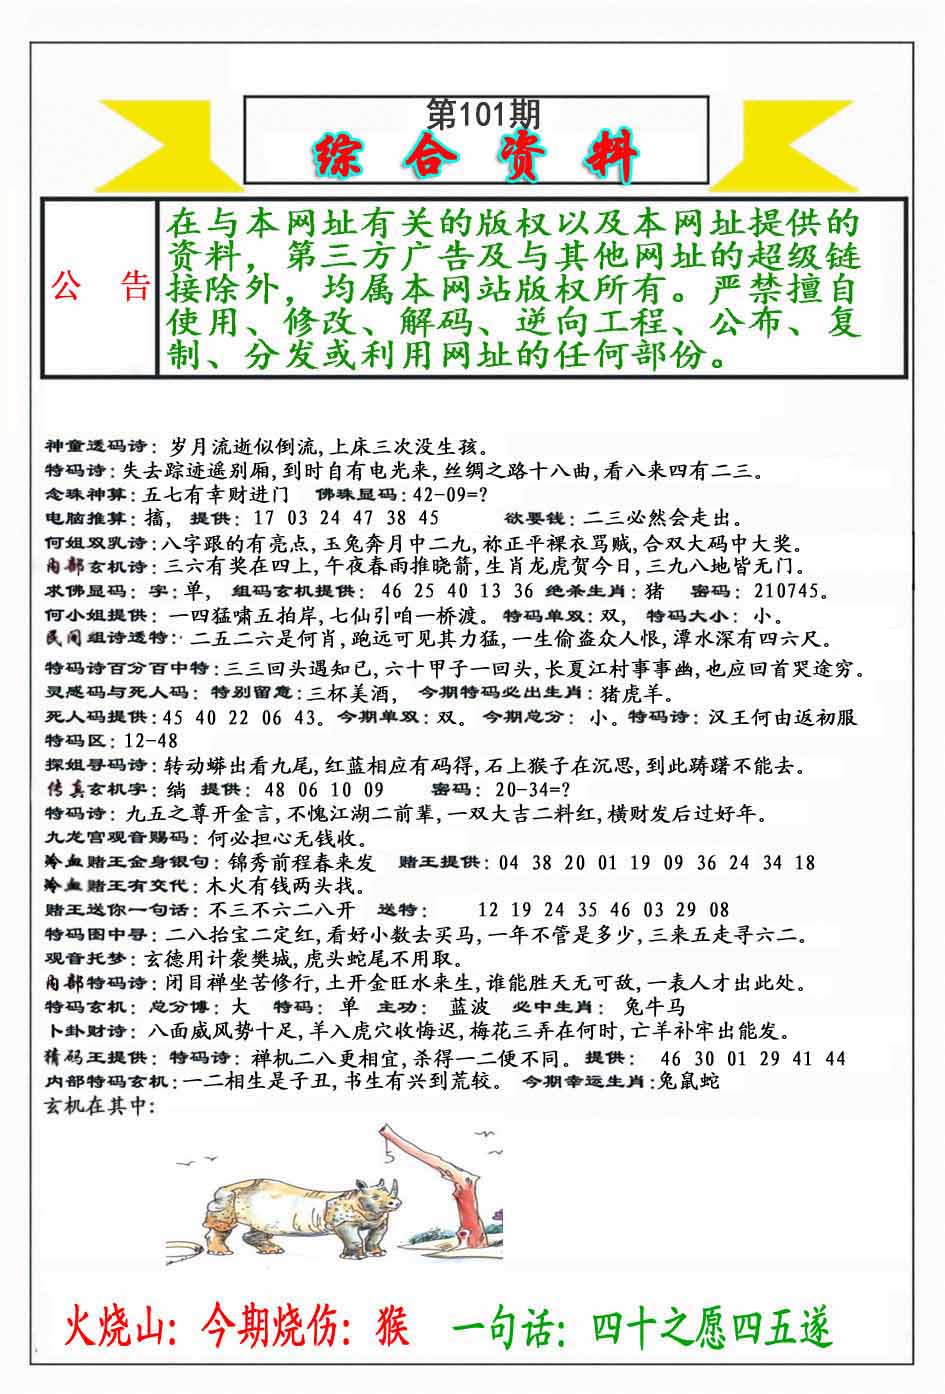 第101期
综合资料
公 告
在与本网址有关的版权以及本网址提供的
资料，第三方广告及与其他网址的超级链
接除外，均属本网站版权所有。严禁擅自
使用、修改、解码、逆向工程、公布、复
制、分发或利用网址的任何部份。
神童透码诗：岁月流逝似倒流,上床三次没生孩。
特码诗：失去踪迹遥别厢,到时自有电光来,丝绸之路十八曲,看八来四有二三。
念珠神算：五七有幸财进门 佛珠显码：42-09=?
电脑推算：搐, 提供：17 03 24 47 38 45 欲要钱：二三必然会走出。
何姐双乳诗：八字跟的有亮点,玉兔奔月中二九,祢正平裸衣骂贼,合双大码中大奖。
内部玄机诗：三六有奖在四上,午夜春雨推晓箭,生肖龙虎贺今日,三九八地皆无门。
求佛显码：字：单, 组码玄机提供：46 25 40 13 36 绝杀生肖：猪 密码：210745。
何小姐提供：一四猛啸五拍岸,七仙引咱一桥渡。特码单双：双, 特码大小：小。
民间组诗透特：二五二六是何肖,跑远可见其力猛,一生偷盗众人恨,潭水深有四六尺。
特码诗百分百中特：三三回头遇知已,六十甲子一回头,长夏江村事事幽,也应回首哭途穷。
灵感码与死人码：特别留意：三杯美酒, 今期特码必出生肖：猪虎羊。
死人码提供：45 40 22 06 43。今期单双：双。今期总分：小。特码诗：汉王何由返初服
特码区：12-48
探姐寻码诗：转动蟒出看九尾,红蓝相应有码得,石上猴子在沉思,到此踌躇不能去。
传真玄机字：绱 提供：48 06 10 09 密码：20-34=?
特码诗：九五之尊开金言,不愧江湖二前辈,一双大吉二料红,横财发后过好年。
九龙宫观音赐码：何必担心无钱收。
冷血赌王金身银句：锦秀前程春来发 赌王提供：04 38 20 01 19 09 36 24 34 18
冷血赌王有交代：木火有钱两头找。
赌王送你一句话：不三不六二八开 送特： 12 19 24 35 46 03 29 08
特码图中寻：二八抬宝二定红,看好小数去买马,一年不管是多少,三来五走寻六二。
观音托梦：玄德用计袭樊城,虎头蛇尾不用取。
内部特码诗：闭目禅坐苦修行,土开金旺水来生,谁能胜天无可敌,一表人才出此处。
特码玄机：总分博：大 特码：单 主功：蓝波 必中生肖：兔牛马
卜卦财诗：八面威风势十足,羊入虎穴收悔迟,梅花三弄在何时,亡羊补牢出能发。
猜码王提供：特码诗：禅机二八更相宜,杀得一二便不同。提供： 46 30 01 29 41 44
内部特码玄机：一二相生是子丑,书生有兴到荒较。今期幸运生肖：兔鼠蛇
玄机在其中：
火烧山：今期烧伤：猴 一句话：四十之愿四五遂